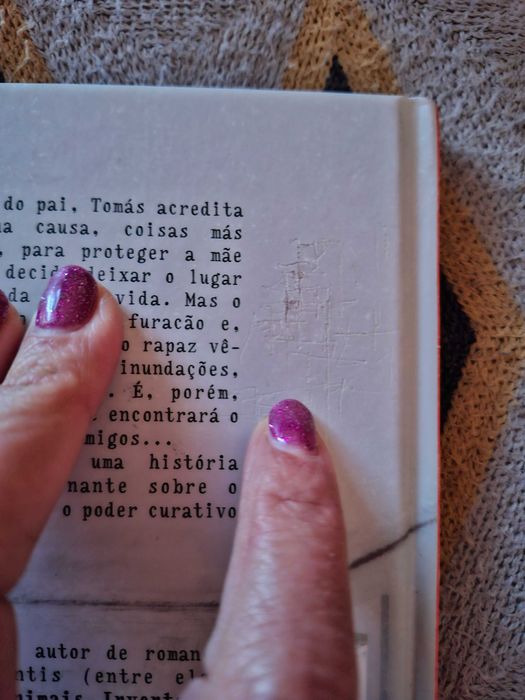 do pai, Tomás acredita
causa, coisas más
para proteger a mãe
deixar o lugar
vida. Mas o
furacão e,
o rapaz vê-
inundações,
. É, porém,
encontrará o
migos...
uma história
nante sobre o
o poder curativo
autor de roman
ntis (entre el
nimais Invent